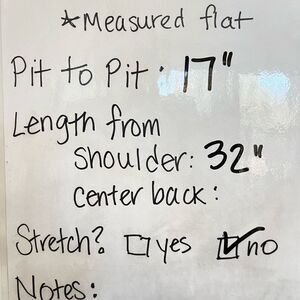 *Measured flat
Pit to Pit: 17"
Length from
Shoulder: 32"
Center back:
Stretch? ☐ yes ☑ no
Notes: